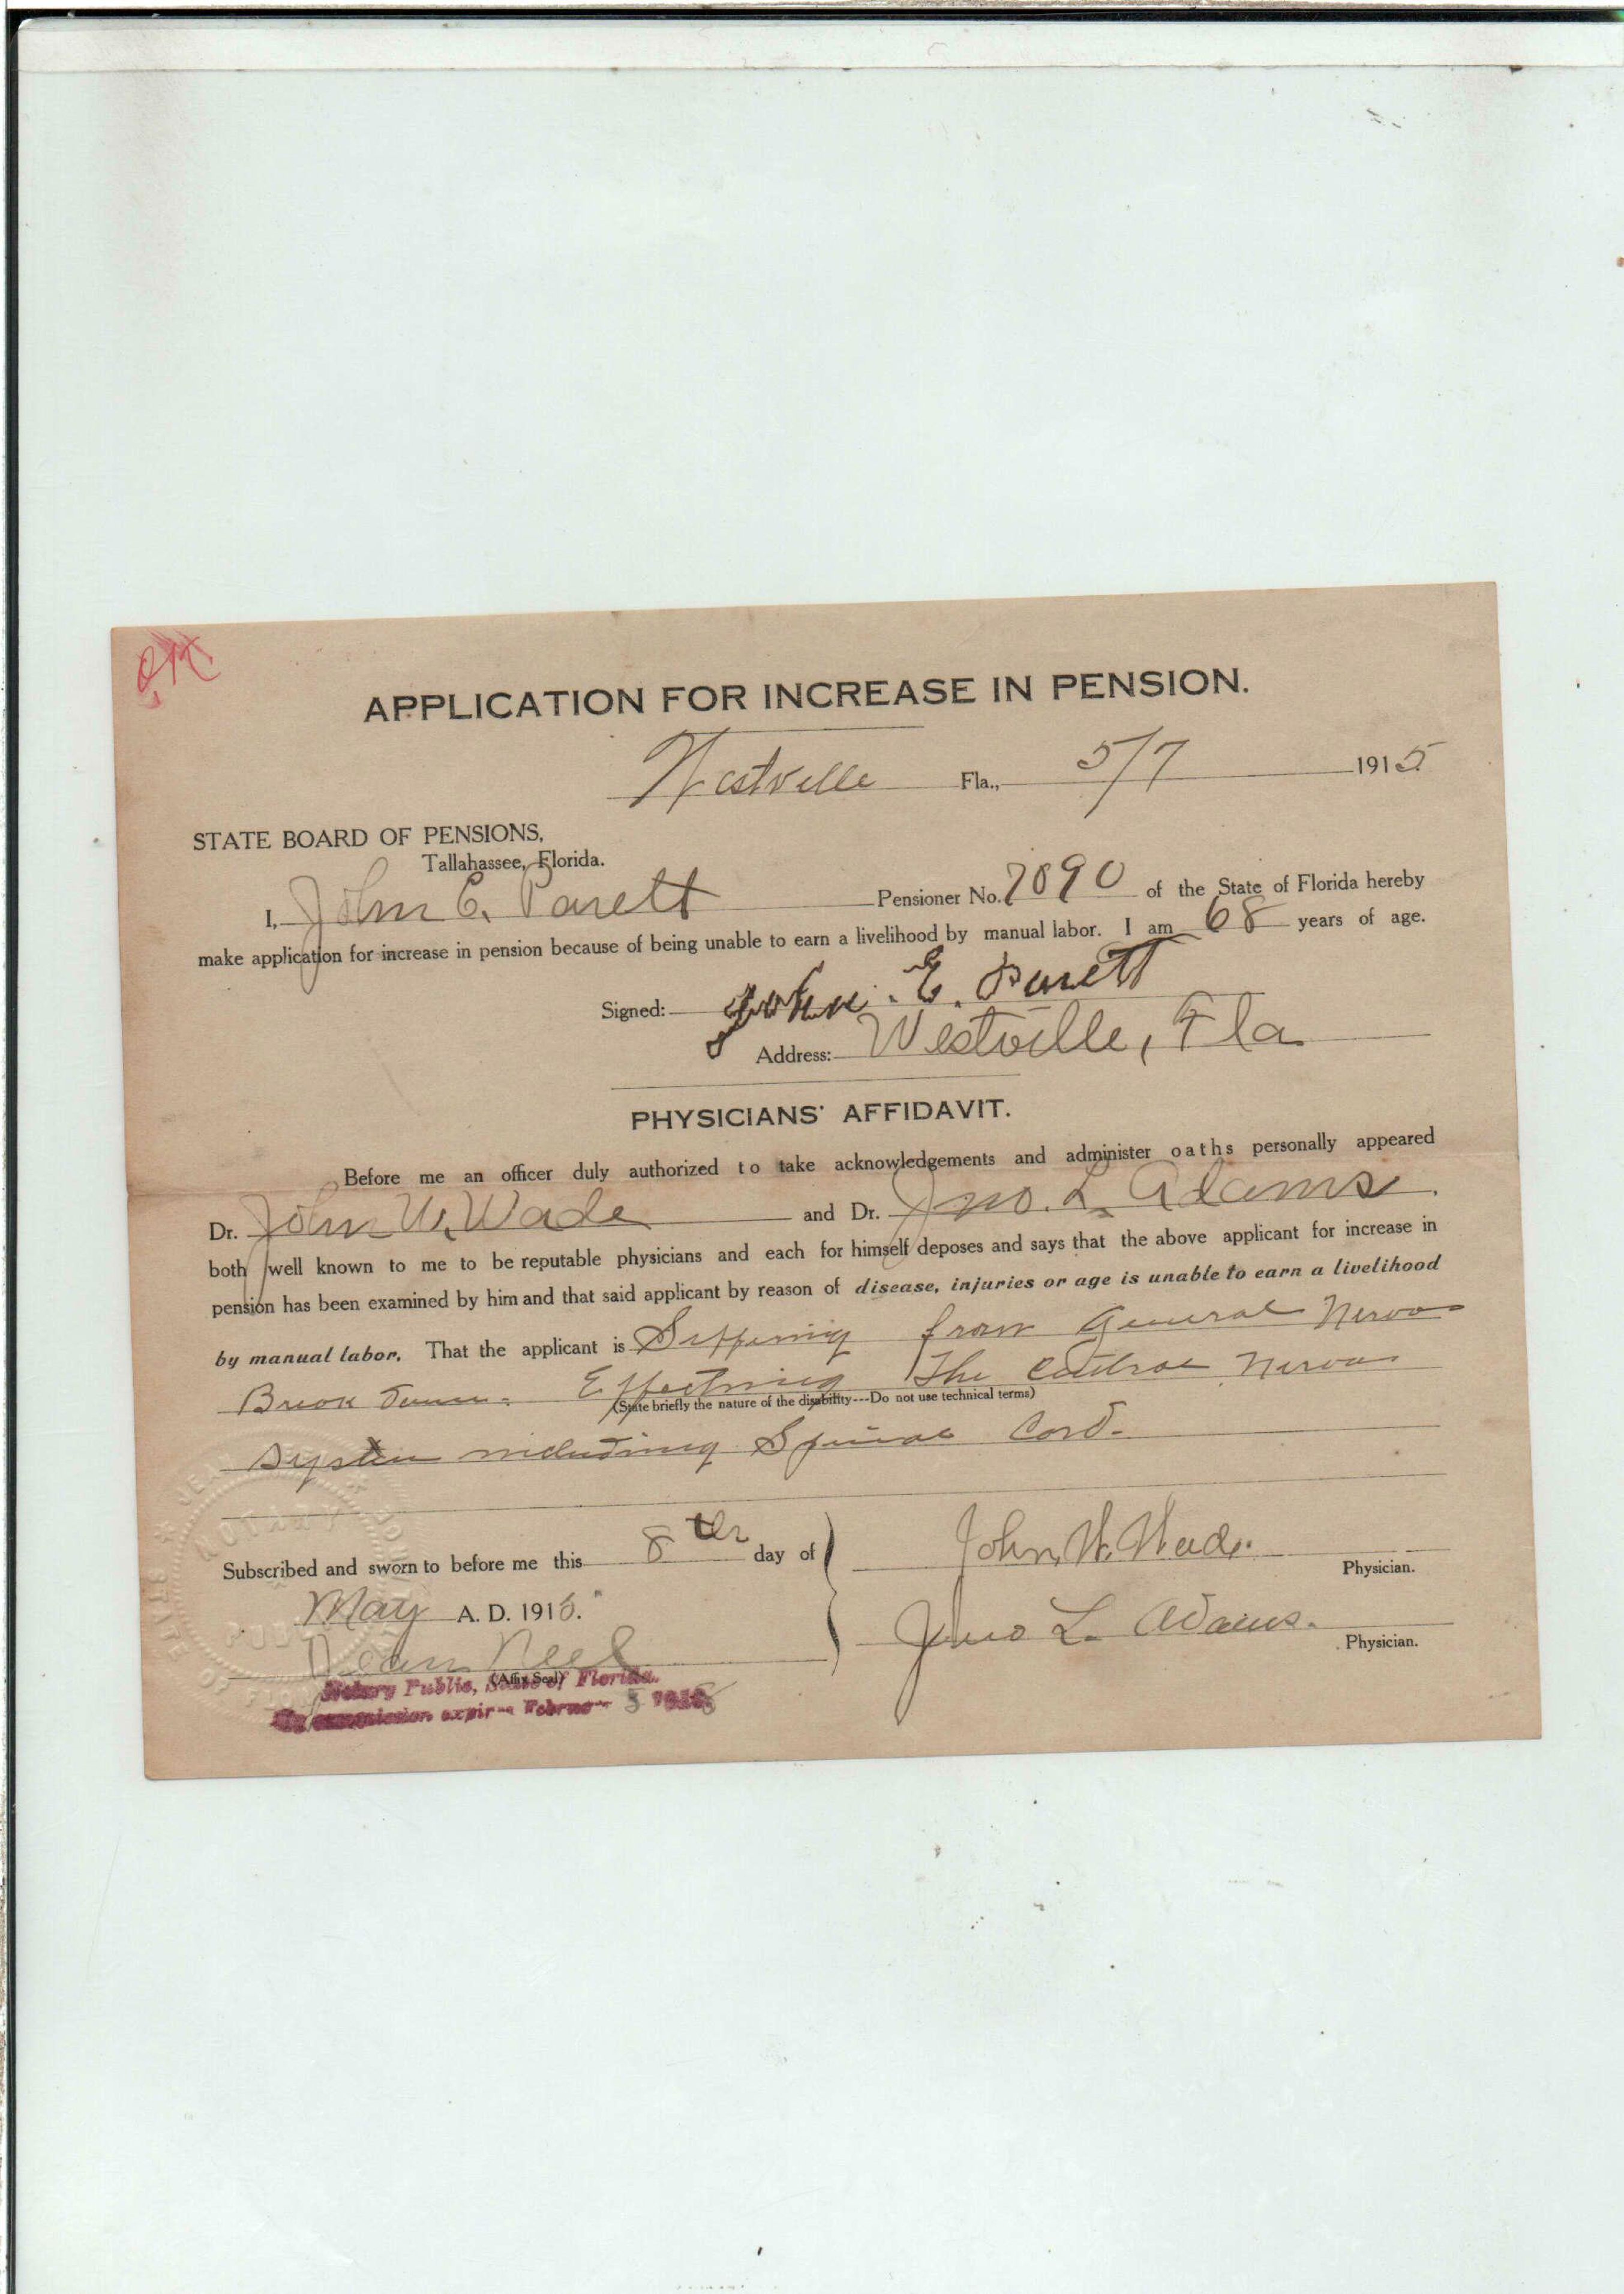 OK
APPLICATION FOR INCREASE IN PENSION.
Westville Fla., 5/7 1915
STATE BOARD OF PENSIONS,
Tallahassee, Florida.
I, John E. Parett Pensioner No. 7090 of the State of Florida hereby
make application for increase in pension because of being unable to earn a livelihood by manual labor. I am 68 years of age.
Signed: John. E. Parett
Address: Westville, Fla.
PHYSICIANS' AFFIDAVIT.
Before me an officer duly authorized to take acknowledgements and administer oaths personally appeared
Dr. John W. Wade and Dr. Jno. L. Adams.
both well known to me to be reputable physicians and each for himself deposes and says that the above applicant for increase in
pension has been examined by him and that said applicant by reason of disease, injuries or age is unable to earn a livelihood
by manual labor. That the applicant is Suffering from General Nervos
Break Down. Effecting The Nervos
(State briefly the nature of the disability---Do not use technical terms)
System including Spinal Cord.
Subscribed and sworn to before me this 8th day of John W. Wade.
Physician.
May A. D. 1915. Jno L. Adams.
Physician.
Neel
(Affix Seal)
Notary Public, State of Florida.
commission expires 5
NOTARY
PUBLIC